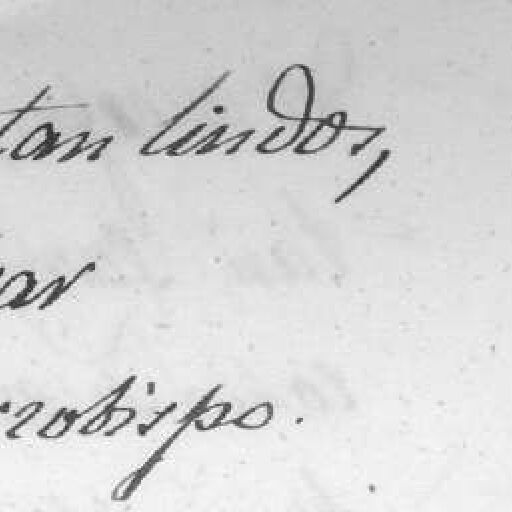 tan lindos,
ar
rzobispo.